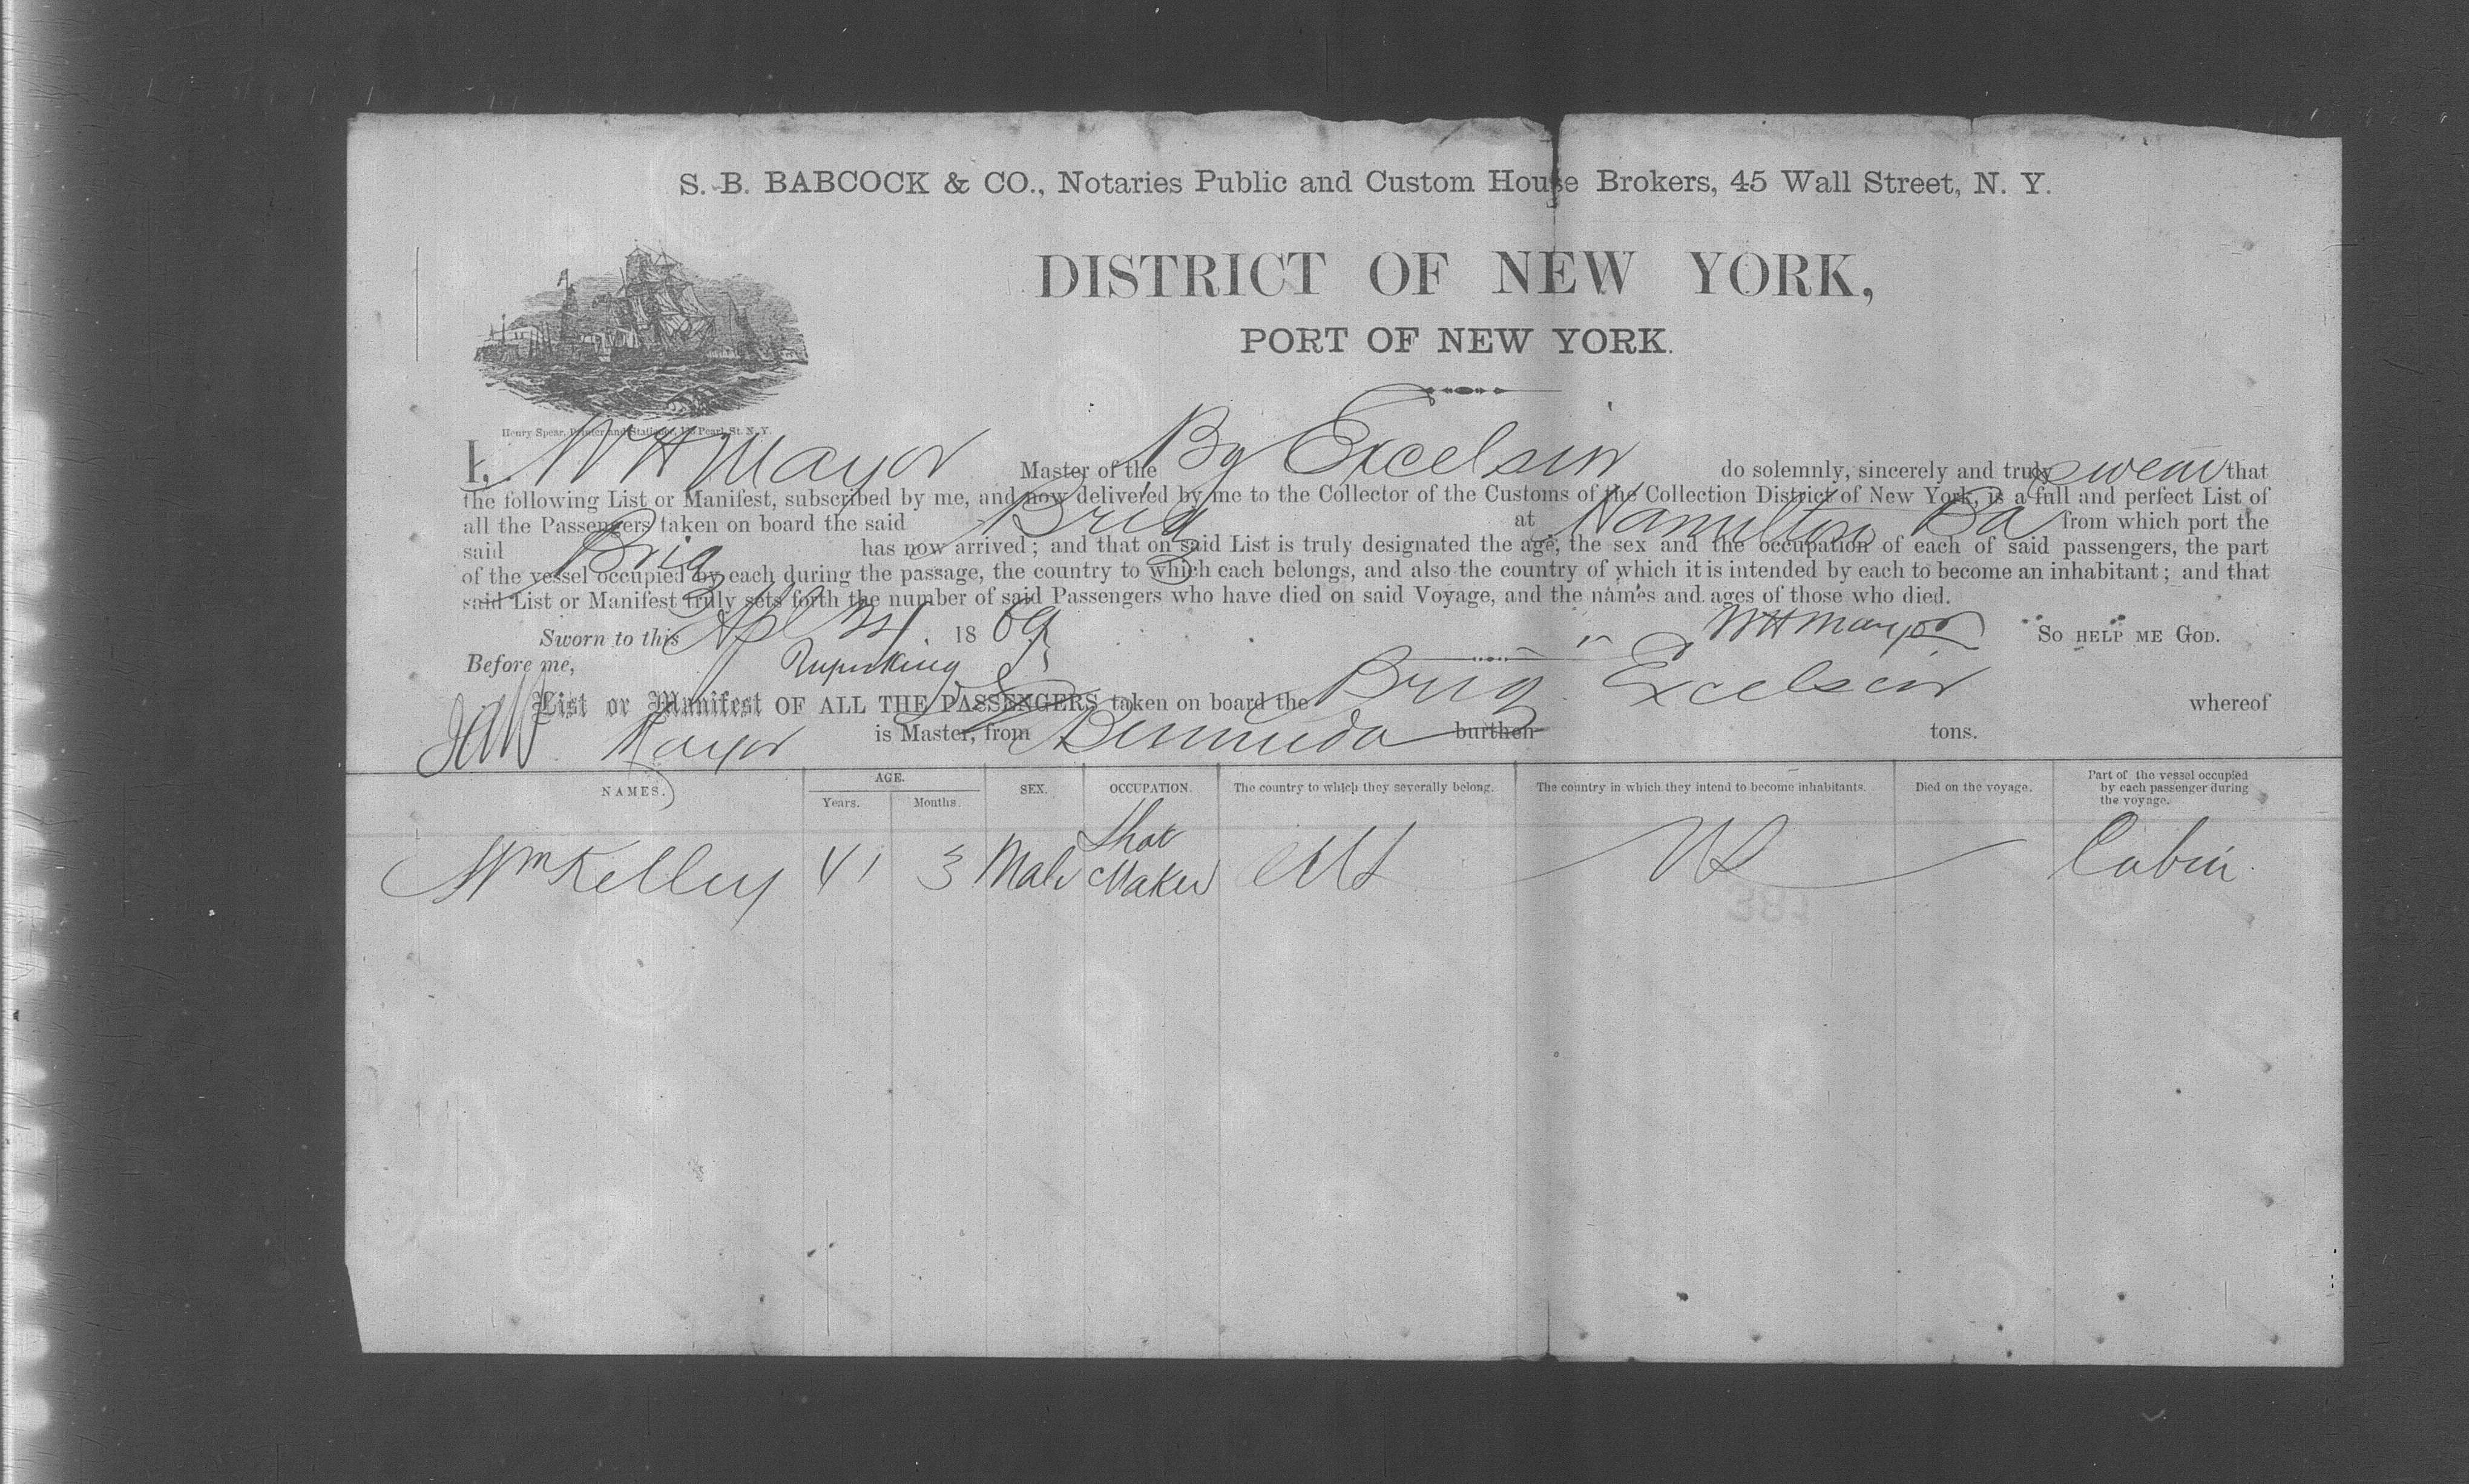 S. B. BABCOCK & CO., Notaries Public and Custom House Brokers, 45 Wall Street, N. Y.
DISTRICT OF NEW YORK,
PORT OF NEW YORK.
Henry Spear, Printer and Stationer, Pearl St. N. Y.
I, W H Mayor Master of the Bg Excelsior do solemnly, sincerely and truly swear that
the following List or Manifest, subscribed by me, and now delivered by me to the Collector of the Customs of the Collection District of New York, is a full and perfect List of
all the Passengers taken on board the said Brig at Hamilton Ba from which port the
said Brig has now arrived; and that on said List is truly designated the age, the sex and the occupation of each of said passengers, the part
of the vessel occupied by each during the passage, the country to which each belongs, and also the country of which it is intended by each to become an inhabitant; and that
said List or Manifest truly sets forth the number of said Passengers who have died on said Voyage, and the names and ages of those who died.
Sworn to this Apl 1869 W H Mayor So HELP ME GOD.
Before me,
List or Manifest OF ALL THE PASSENGERS taken on board the Brig Excelsior whereof
Mayor is Master, from Bermuda burthen tons.
NAMES. AGE. Years. Months. SEX. OCCUPATION. The country to which they severally belong. The country in which they intend to become inhabitants. Died on the voyage. Part of the vessel occupied by each passenger during the voyage.
Wm Kelley 41 3 Male Maker US US Cabin